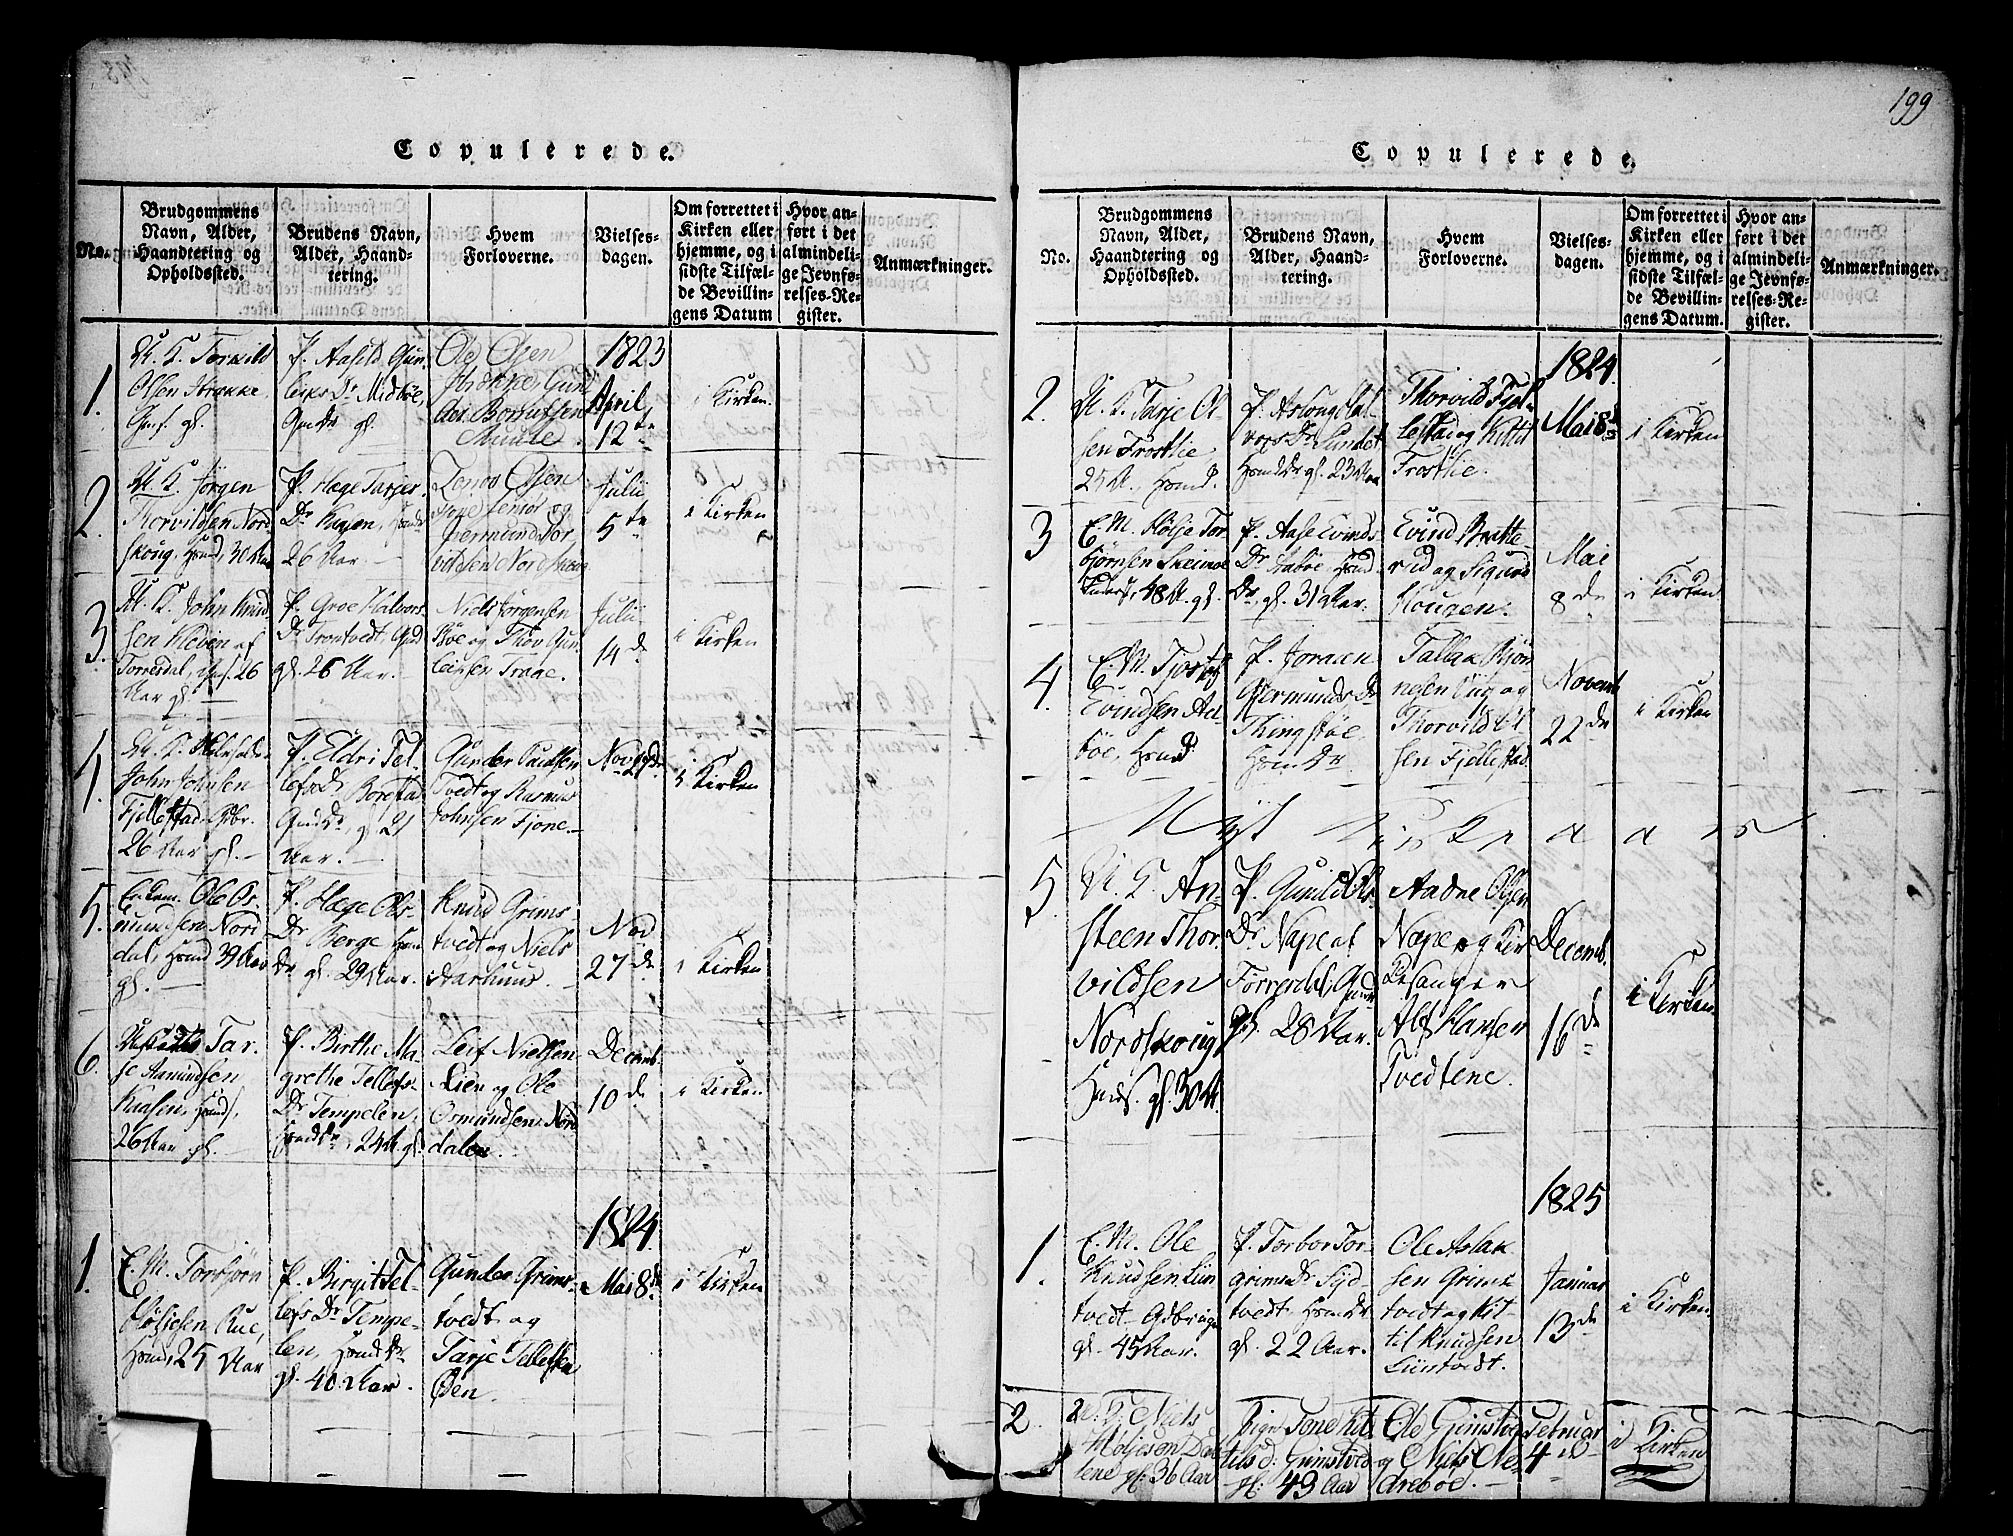 Copulerede.
No.
Brudgommens
Navn, Alder,
Haandtering og
Opholdssted.
Brudens Navn,
Alder, Haand-
tering.
Hvem
Forloverne.
Vielses-
dagen.
Om forrettet i
Kirken eller
hjemme, og i
sidste Tilfæl-
de Bevillin-
gens Datum
Hvor an-
ført i det
almindeli-
ge Jevnfø-
relses-Re-
gister.
Anmærkninger.
1.
U. K. Torkild
Olsen Strække
gl.
P. Aasild Gun-
leiks Dr Midbøe,
gl.
Ole Olsen
Strække, Gun
Skuule
1823
April
12te
i Kirken.
2
U. K. Jørgen
Thorvildsen Nord
skoug, Hsmd, 30 Aar
P. Hæge Tarjes
Dr Kaasen,
26 Aar.
Olsen
og
Germund Tor
vildsen Nordskoug
Julii
5te
i Kirken
3.
U. K. John Knud
sen Kleven af
Torrisdal, 26
Aar gl.
P. Groe Halvors
Dr Trontvedt
gl. 26 Aar.
Niels Jørgensen
Bøe og Thov Gun
leiksen Traae.
Julii
14de
i Kirken
4.
U. K.
John Johnsen
Fjellestad Gdbr.
26 Aar gl.
P. Eldri Tel
lefs Dr Borstad
gl 21
Aar.
Gunder Paulsen
Tvedt og Rasmus
Johnsen Fjone.
Nov
i Kirken
5.
Enkem. Ole Os
mundsen Nord-
dal, Hsmd 39 Aar
gl.
P. Hæge Ols
Dr Berge
gl. 29 Aar.
Knud Grims-
tvedt og Niels
Aarhuus.
Nov
27de
i Kirken
6.
Tar-
je Aamundsen
Kaasen,
26 Aar gl.
P. Birthe Ma
grethe Tellefs
Dr Tempelen,
24 A. gl.
Leif Nielsen
Lien og Ole
Osmundsen Nord
dalen.
Decemb
10de
i Kirken
1824.
1.
E. M. Torbjørn
Høljesen Rue,
Hsmd, 25 Aar
P. Birgit Tel-
lefs Dr Tempe-
len,
gl. 40 Aar.
Gunder Grims-
tvedt og
Tarje Tellefsen
Øen.
Mai 8de
i Kirken
199
Copulerede.
No.
Brudgommens
Navn, Alder,
Haandtering og
Opholdssted.
Brudens Navn,
Alder, Haand-
tering.
Hvem
Forloverne.
Vielses-
dagen.
Om forrettet i
Kirken eller
hjemme, og i
sidste Tilfæl-
de Bevillin-
gens Datum.
Hvor an-
ført i det
almindeli-
ge Jevnfø-
relses-Re-
gister.
Anmærkninger.
1824.
2.
U. K. Tarje Ol
sen Frostlie
25 A. Hsmd.
P. Aslaug Hal-
vors Dr Sundet
gl. 23 Aar
Thorvild Fjel-
lestad og Kittil
Frostlie.
Mai 8de
i Kirken
3
E. M. Hølje Tor
bjørnsen
48 A. gl.
P. Aase Evinds
Dr
Dr, gl. 31 Aar.
Evind Britte-
rud og Sigurd
Hougen.
Mai
8de
i Kirken
4.
E. M. Tjostolf
Evindsen Aa
bøe, Hsmd
P. Joraan
Germunds Dr
Thingstøe
Tallak Bjøn
nesen Uug og
Thorvild Ol
sen Fjellestad.
Novemb
22de
i Kirken
Nyt Kirke aar
5.
U. K. An
steen Thor-
vildsen
Nordskoug
gl. 30 A.
P. Gunild Ols
Dr Nape af
Torrerdal,
gl. 28 Aar.
Aadne Olsen
Nape og Kir
kesanger
Alf Hansen
Tvedtene.
Decemb.
16de
i Kirken
1825
1.
E. M. Ole
Knudsen Lun
tvedt Gdbruger
gl. 45 Aar.
P. Torbor Tor-
grims Dr Syd-
tvedt
gl. 22 Aar.
Ole Aslak
sen Grims
tvedt og Kit-
til Knudsen
Luntvedt.
Januar
13de
i Kirken
2.
U. K. Niels
Høljesen Dal
lene gl: 36 Aar
Pige Tone Kit
tilsd: Grimstved
gl: 49 Aar
Ole Grimstvedt
og Niels Ne-
drebøe.
Februar
4de
i Kirken